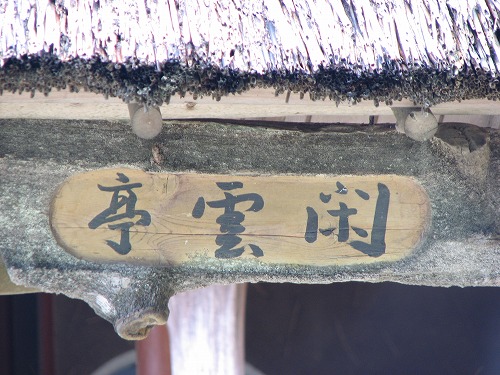 閑雲亭